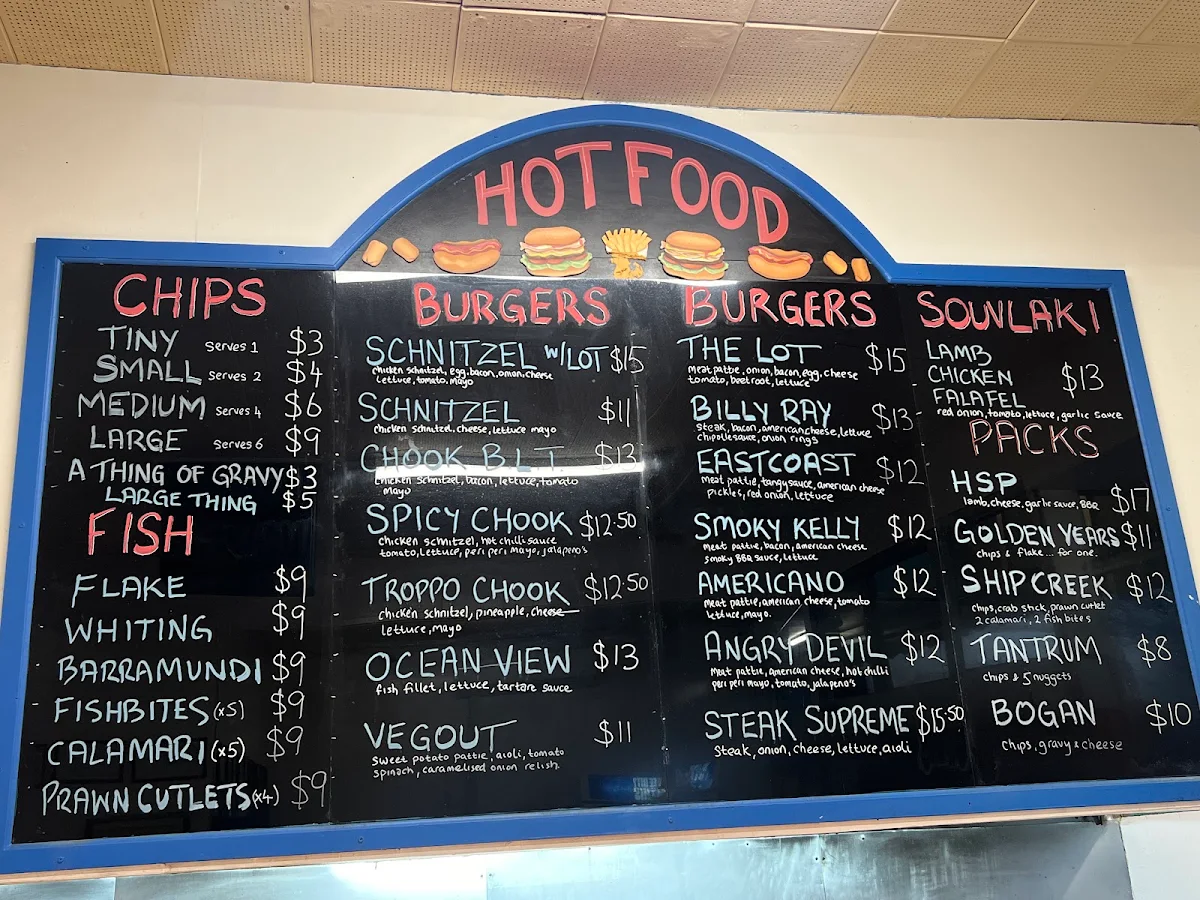 HOT FOOD
CHIPS
TINY Serves 1 $3
SMALL Serves 2 $4
MEDIUM Serves 4 $6
LARGE Serves 6 $9
A THING OF GRAVY $3
LARGE THING $5
FISH
FLAKE $9
WHITING $9
BARRAMUNDI $9
FISHBITES (x5) $9
CALAMARI (x5) $9
PRAWN CUTLETS (x4) $9
BURGERS
SCHNITZEL W/LOT $15
chicken schnitzel, egg, bacon, onion, cheese
lettuce, tomato, mayo
SCHNITZEL $11
chicken schnitzel, cheese, lettuce mayo
CHOOK B.L.T. $13
chicken schnitzel, bacon, lettuce, tomato
mayo
SPICY CHOOK $12.50
chicken schnitzel, hot chilli sauce
tomato, lettuce, peri peri mayo, jalapeno's
TROPPO CHOOK $12.50
chicken schnitzel, pineapple, cheese
lettuce, mayo
OCEAN VIEW $13
fish fillet, lettuce, tartare sauce
VEGOUT $11
sweet potato pattie, aioli, tomato
spinach, caramelised onion relish.
BURGERS
THE LOT $15
meat pattie, onion, bacon, egg, cheese
tomato, beetroot, lettuce
BILLY RAY $13
steak, bacon, american cheese, lettuce
chipotle sauce, onion rings
EASTCOAST $12
meat pattie, tangy sauce, american cheese
pickles, red onion, lettuce
SMOKY KELLY $12
meat pattie, bacon, american cheese
smoky BBQ sauce, lettuce
AMERICANO $12
meat pattie, american cheese, tomato
lettuce, mayo.
ANGRY DEVIL $12
Meat pattie, american cheese, hot chilli
peri peri mayo, tomato, jalapeno's
STEAK SUPREME $15.50
Steak, onion, cheese, lettuce, aioli
SOUVLAKI
LAMB
CHICKEN $13
FALAFEL
red onion, tomato, lettuce, garlic sauce
PACKS
HSP $17
lamb, cheese, garlic sauce, BBQ
GOLDEN YEARS $11
chips & flake... for one.
SHIP CREEK $12
chips, crab stick, prawn cutlet
2 calamari, 2 fish bites
TANTRUM $8
chips & 5 nuggets
BOGAN $10
chips, gravy & cheese